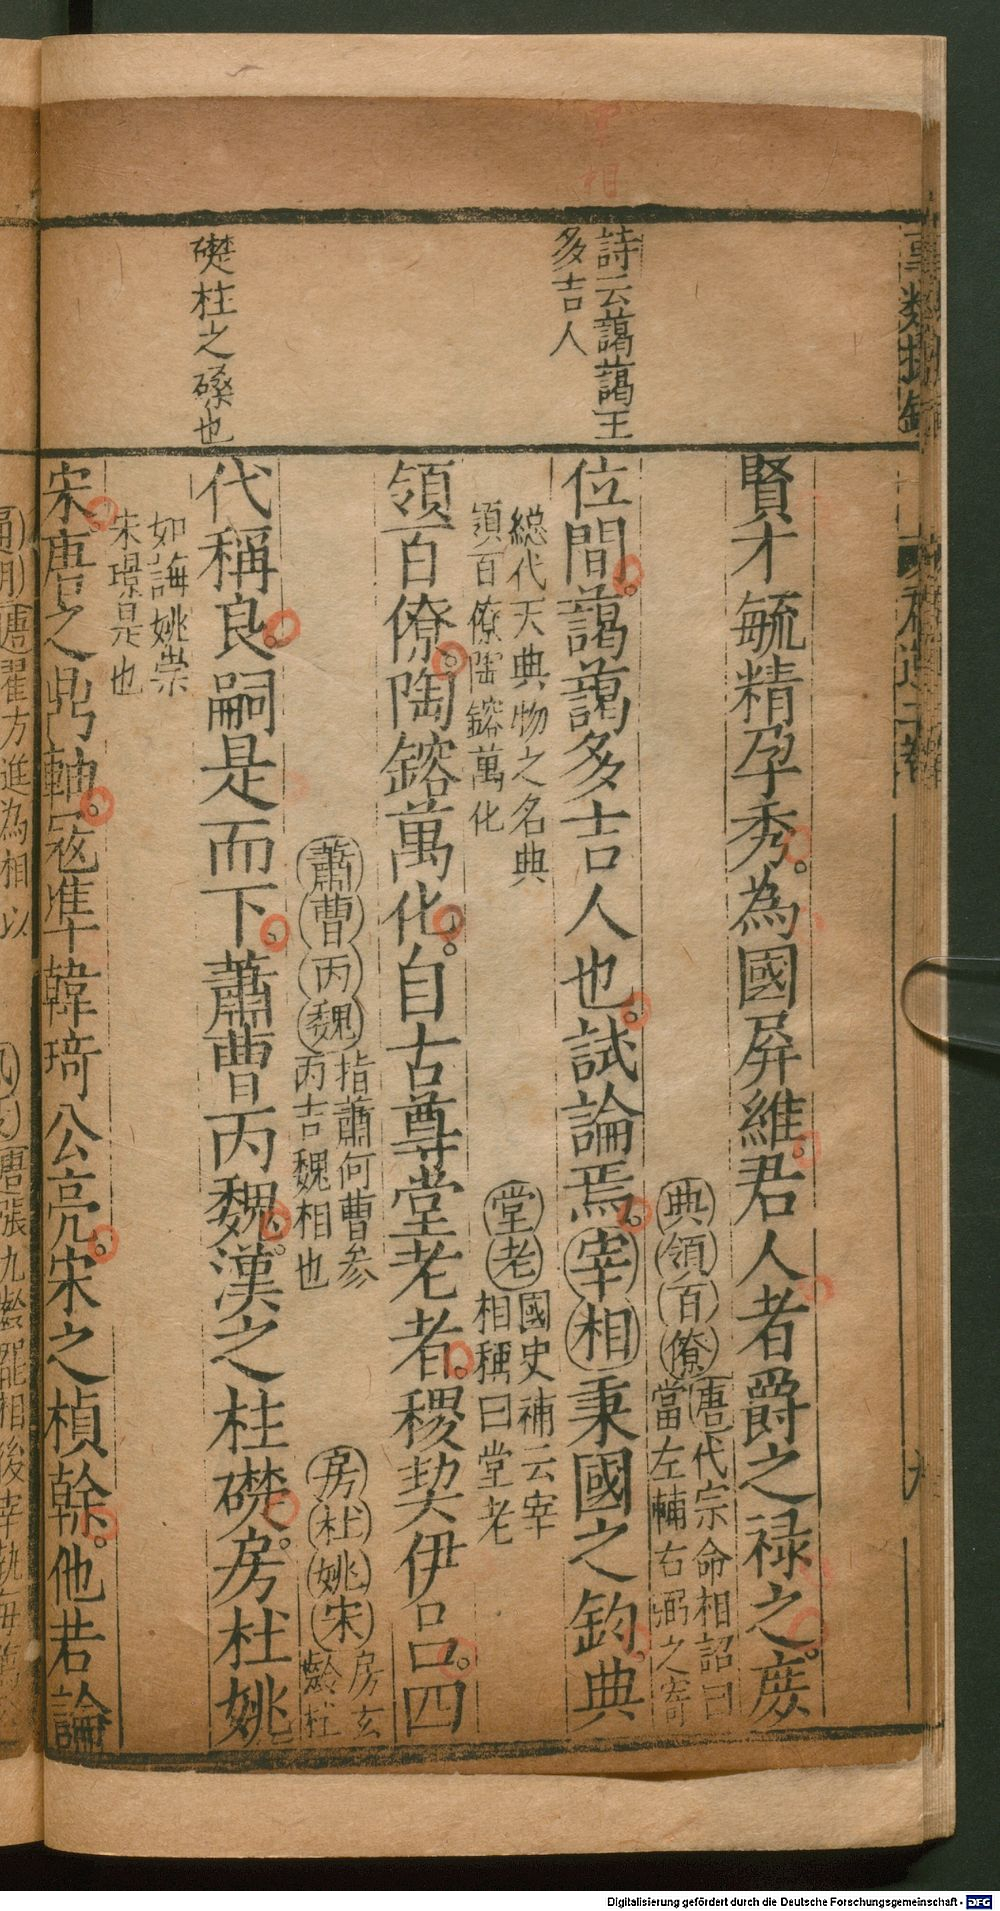 詩云藹藹王
多吉人
礎柱之磉也
賢才毓精孕秀。為國屛維。君人者爵之祿之。庶
典領百僚唐代宗命相詔曰
當左輔右弼之寄
位間。藹藹多吉人也。試論焉。宰相秉國之鈞典
總代天典物之名典
領百僚陶鎔萬化
堂老國史補云宰
相稱曰堂老
領百僚。陶鎔萬化。自古尊堂老者。稷契伊呂。四
蕭曹丙魏指蕭何曹參
丙吉魏相也
房杜姚宋房玄
齡杜
代稱良。嗣是而下。蕭曹丙魏。漢之柱礎。房杜姚
如誨姚崇
宋璟是也
宋。唐之鼎軸。寇準韓琦公亮。宋之楨幹。他若論
唐翟方進為相以
唐張九齡罷相後宰執每薦公
Digitalisierung gefördert durch die Deutsche Forschungsgemeinschaft - DFG